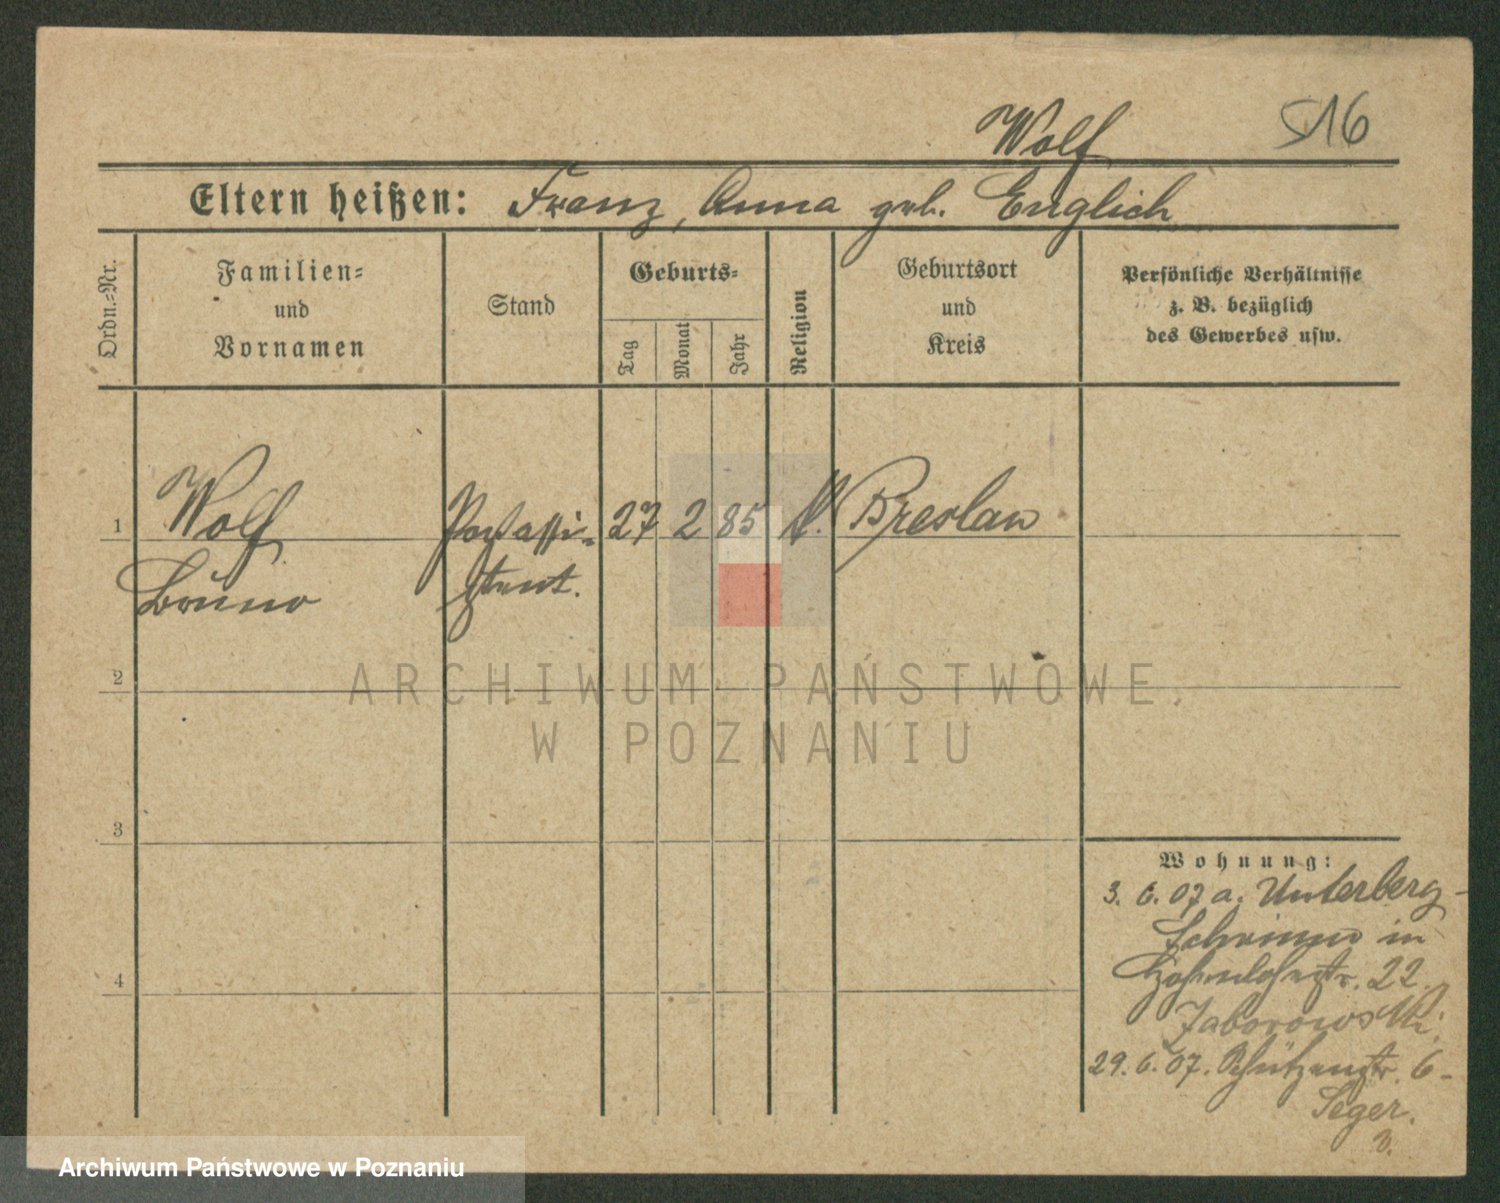 Wolf 516
Eltern heißen: Franz, Anna geb. Englich
Ordn.=Nr.
Familien=
und
Vornamen
Stand
Geburts=
Tag
Monat
Jahr
Religion
Geburtsort
und
Kreis
Persönliche Verhältnisse
z. B. bezüglich
des Gewerbes usw.
1 Wolf Postassi- 27 2 85 k. Breslau
Bruno stent.
2
3
4
Wohnung:
3. 6. 07 a. Unterberg-
Schrimm in
Hohenlohestr. 22.
Zaborowski.
29. 6. 07. Schützenstr. 6-
Seger.
ARCHIWUM PAŃSTWOWE
W POZNANIU
Archiwum Państwowe w Poznaniu